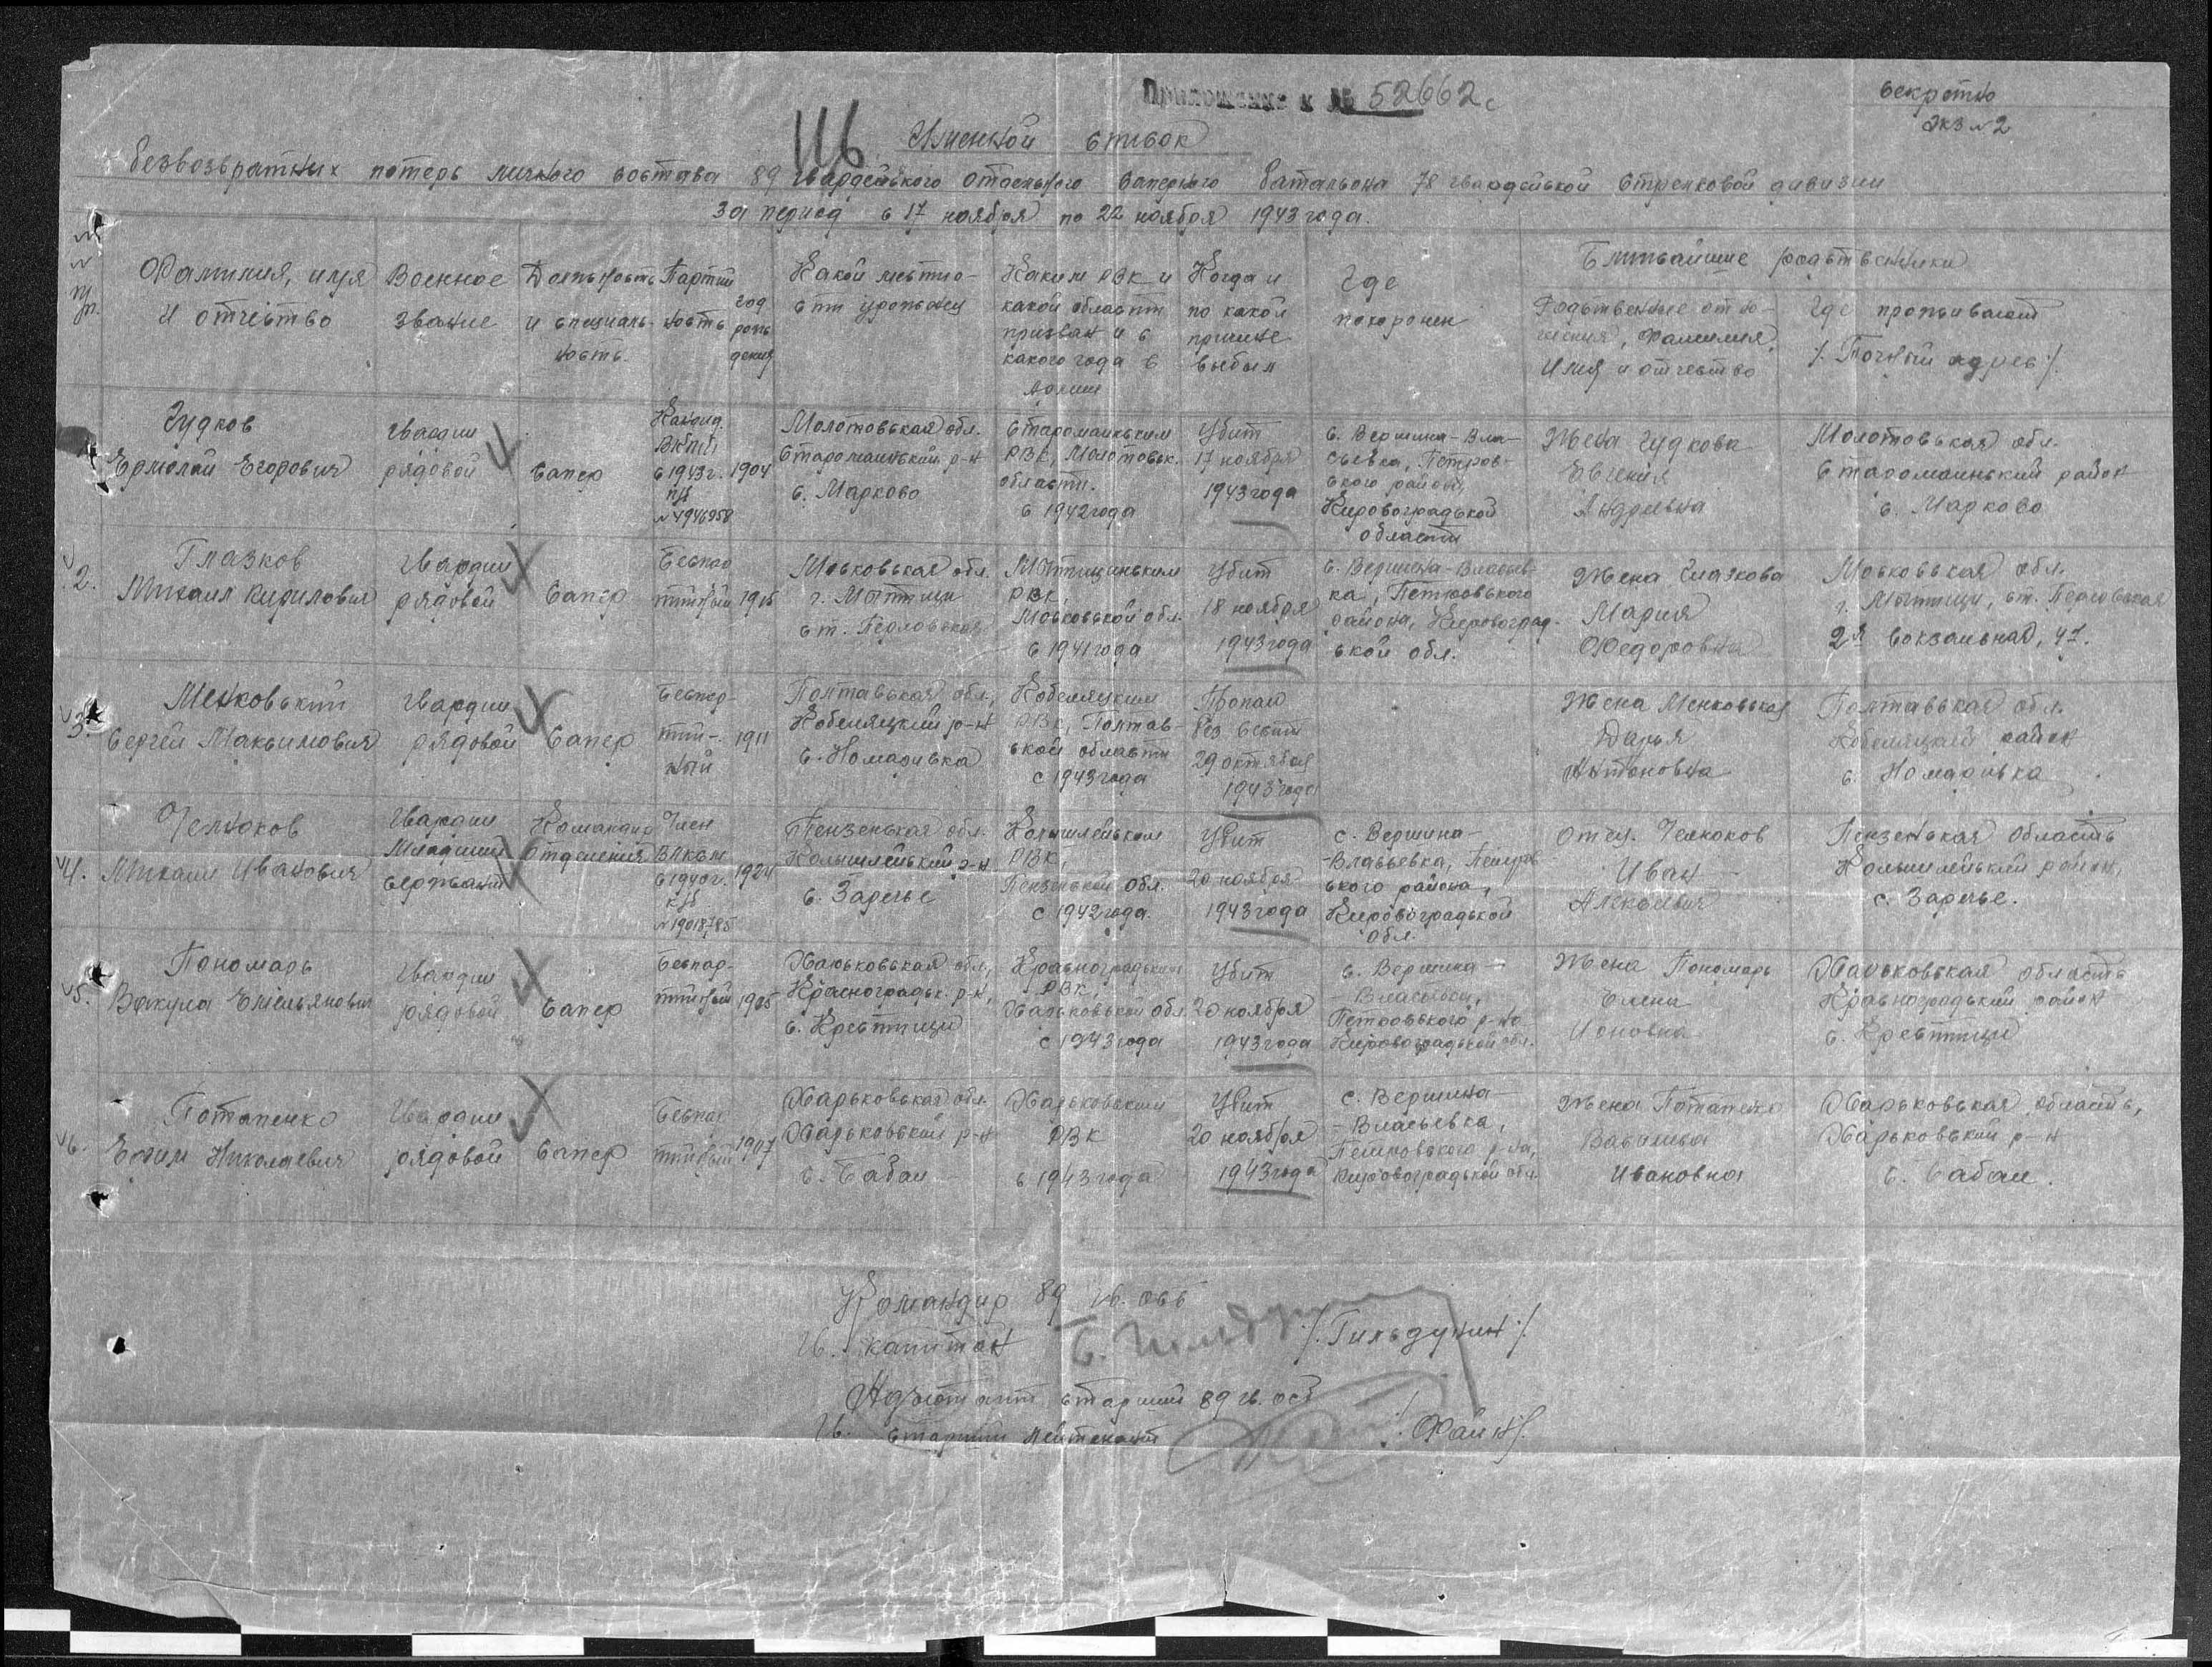 Приложение к № 52662с
Секретно
Экз №2
116
Именной список
безвозвратных потерь личного состава 89 гвардейского отдельного саперного батальона 78 гвардейской стрелковой дивизии
за период с 17 ноября по 22 ноября 1943 года.
№
№
пп.
Фамилия, имя
и отчество
Военное
звание
Должность
и специаль-
ность.
Партий
ность
год
рож
дения
Какой местно-
сти уроженец
Каким РВК и
какой области
призван и с
какого года в
армии
Когда и
по какой
причине
выбыл
Где
похоронен
Ближайшие родственники
Родственные отно-
шения, фамилия,
Имя и отчество
Где проживают
/. Точный адрес ./
Гудков
Ермолай Егорович
Гвардии
рядовой
Сапер
Канд.
ВКП(б)
с 1943 г.
п/б
№ 4946958
1904
Молотовская обл.
Старомаинский р-н
с. Марково
Старомаинским
РВК, Молотовск.
области.
с 1942 года
Убит
17 ноября
1943 года
с. Вершина-Вла-
сьевка, Петров-
ского района,
Кировоградской
области
Жена Гудкова
Евгения
Андреевна
Молотовская обл.
Старомаинский район
с. Марково
2.
Глазков
Михаил Кирилович
Гвардии
рядовой
Сапер
Беспар
тийный
1915
Московская обл.
г. Мытищи
ст. Перловская
Мытищинским
РВК,
Московской обл.
с 1941 года
Убит
18 ноября
1943 года
с. Вершина-Власьев-
ка, Петровского
района, Кировоград-
ской обл.
Жена Глазкова
Мария
Федоровна
Московская обл.
г. Мытищи, ст. Перловская
2я Вокзальная, 41.
3.
Менковский
Сергей Максимович
Гвардии
рядовой
Сапер
Беспар-
тий-
ный
1911
Полтавская обл,
Кобеляцкий р-н
с. Комаривка
Кобеляцким
РВК, Полтав-
ской области
с 1943 года
Пропал
без вести
29 октября
1943 года
Жена Менковская
Дарья
Антоновна
Полтавская обл.
Кобеляцкий район
с. Комаривка
4.
Челноков
Михаил Иванович
Гвардии
Младший
сержант
Командир
отделения
Член
ВЛКСМ
с 1940 г.
к/б
№ 19018785
1924
Пензенская обл.
Колышлейский р-н
с. Заречье
Колышлейским
РВК,
Пензенской обл.
с 1942 года.
Убит
20 ноября
1943 года
с. Вершина-
-Власьевка, Петров
ского района,
Кировоградской
обл.
Отец. Челноков
Иван
Алексеевич
Пензенская область
Колышлейский район,
с. Заречье.
5.
Пономарь
Вакула Емельянович
Гвардии
рядовой
Сапер
Беспар-
тийный
1905
Харьковская обл,
Красноградск. р-н,
с. Крестищи
Красноградским
РВК,
Харьковской обл.
с 1943 года
Убит
20 ноября
1943 года
с. Вершина-
-Власьевка,
Петровского р-на
Кировоградской обл.
Жена Пономарь
Елена
Ионовна
Харьковская область
Красноградский район
с. Крестищи
6.
Потапенко
Ефим Николаевич
Гвардии
рядовой
Сапер
Беспар
тийный
1907
Харьковская обл.
Харьковский р-н
с. Бабаи
Харьковским
РВК
с 1943 года
Убит
20 ноября
1943 года
с. Вершина-
-Власьевка,
Петровского р-на,
Кировоградской обл.
Жена Потапенко
Василиса
Ивановна
Харьковская область,
Харьковский р-н
с. Бабаи.
Командир 89 гв. осб
гв. капитан
/. Гильдунин ./
Адъютант старший 89 гв. осб
гв. старший лейтенант
/. Файн ./